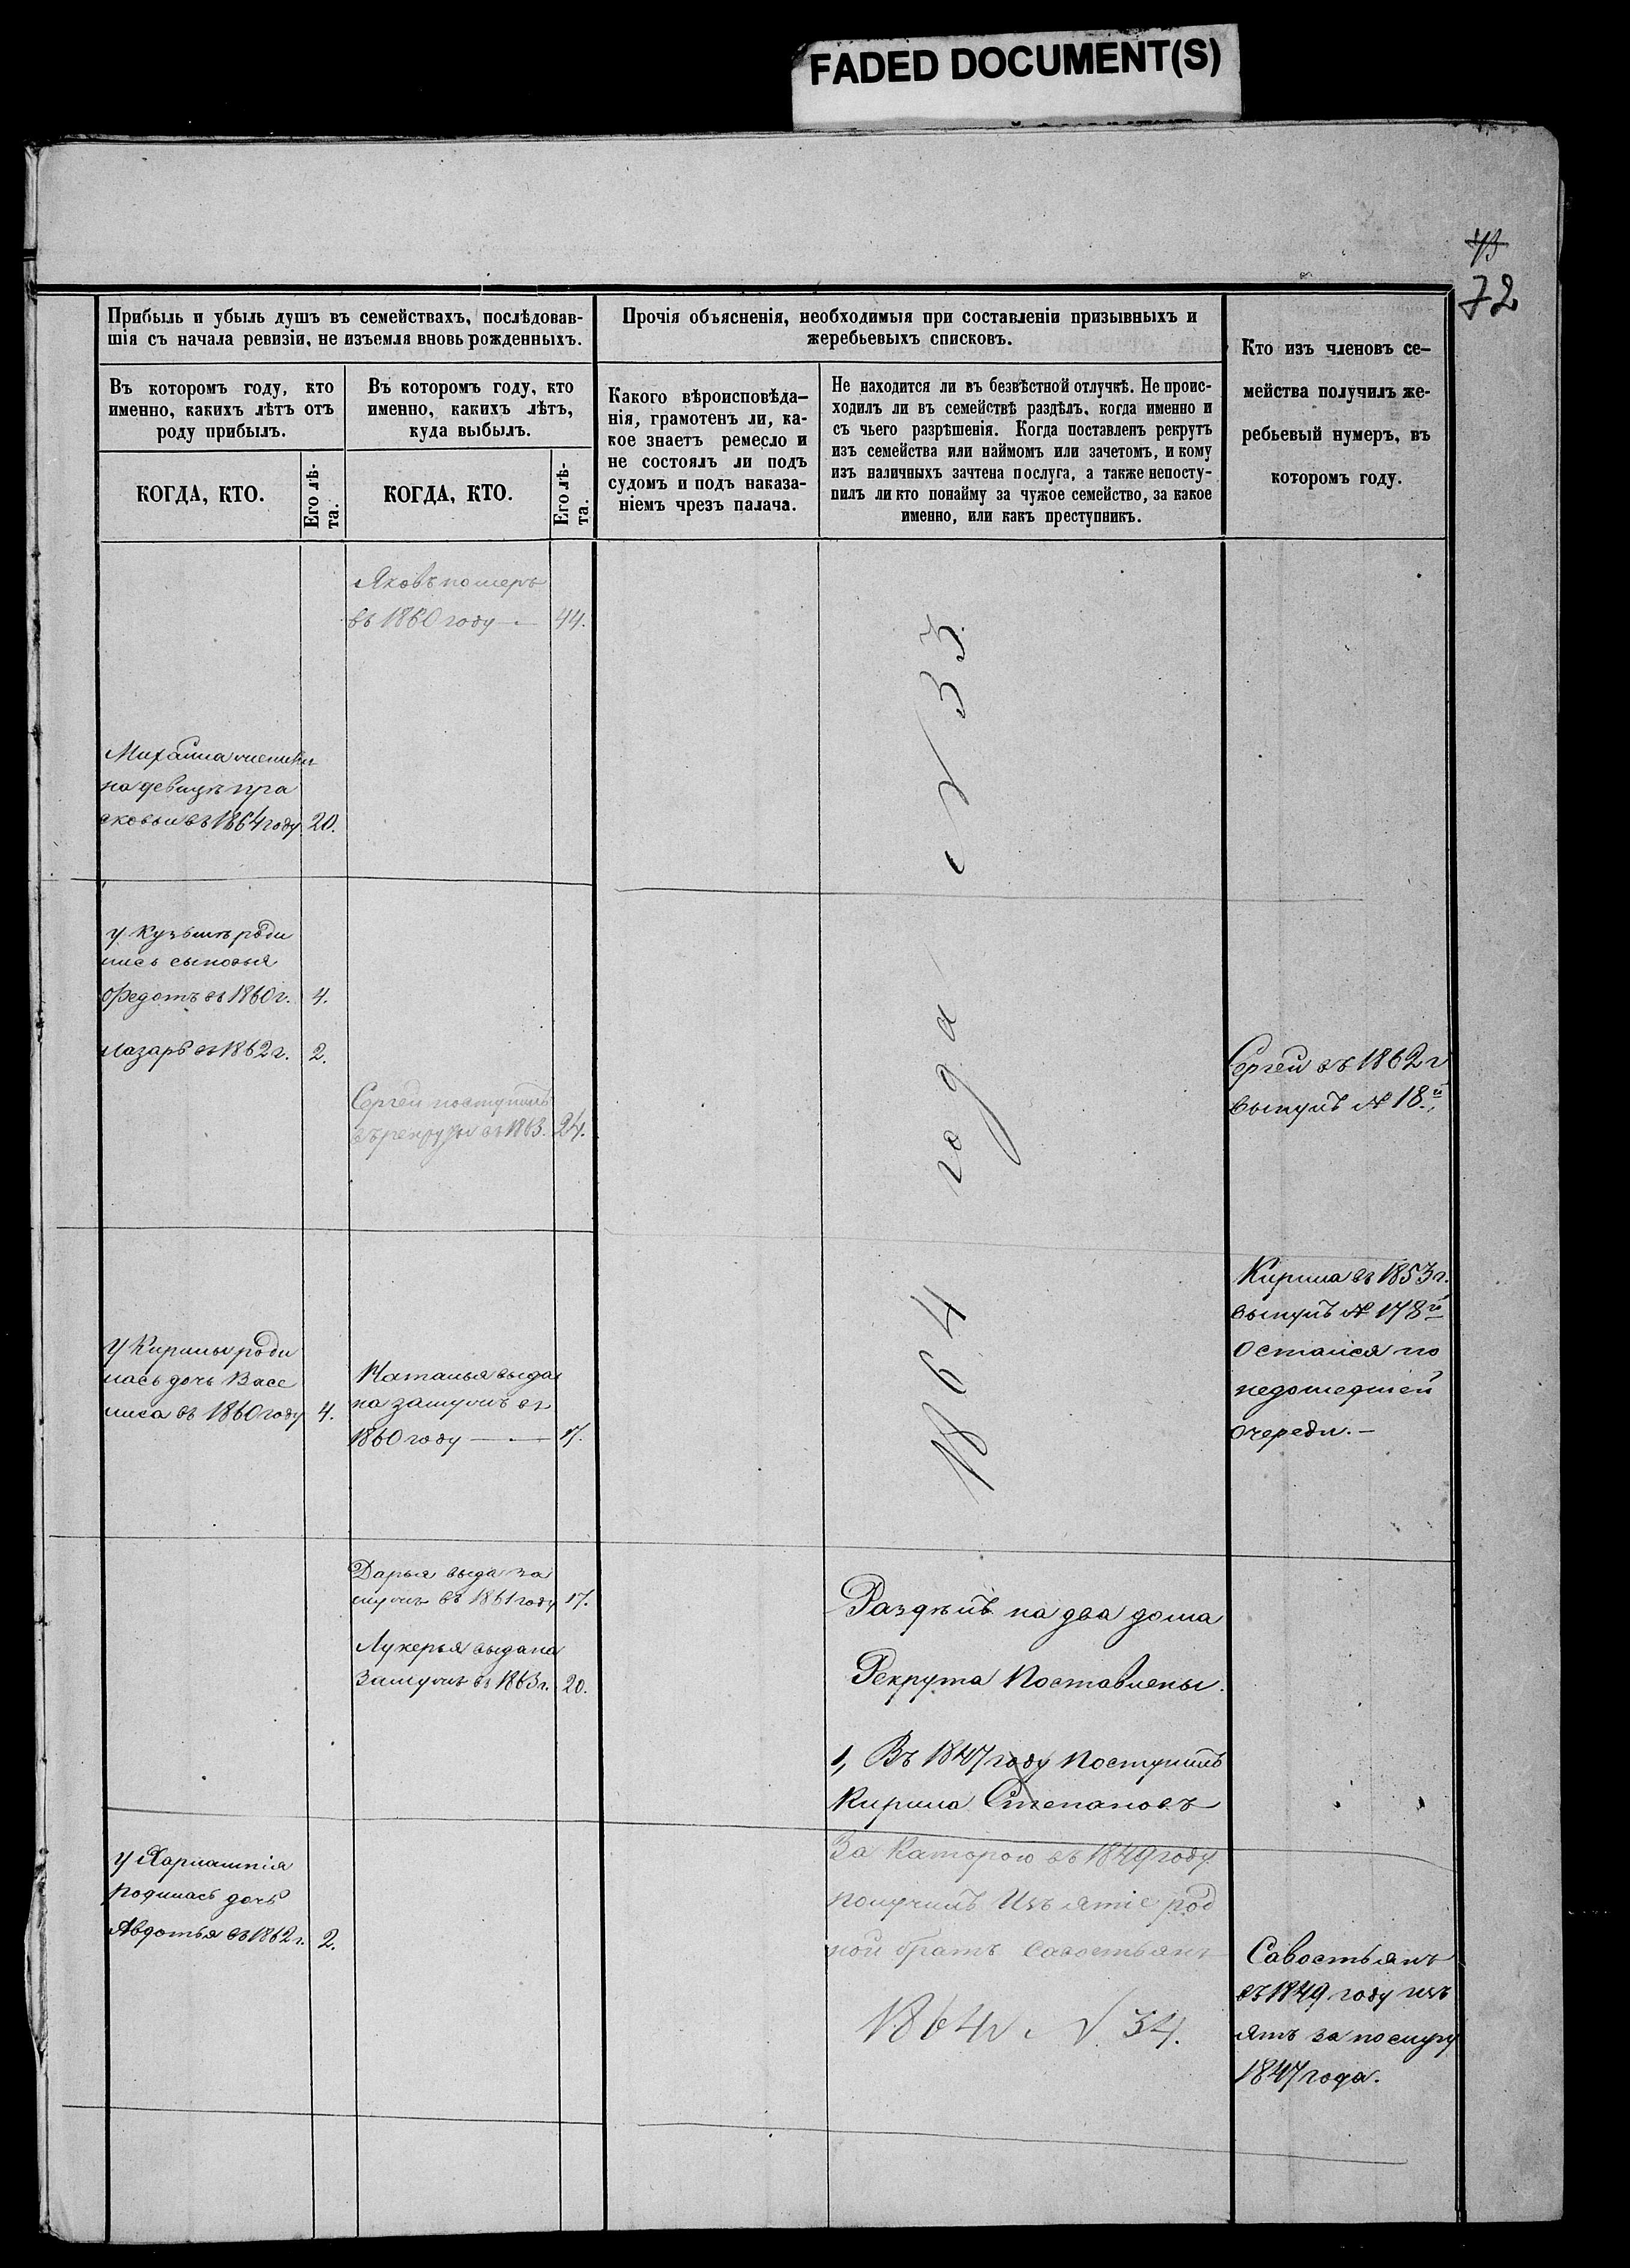 FADED DOCUMENT(S)
73
72
Прибыль и убыль душъ въ семействахъ, послѣдовав-
шія съ начала ревизіи, не изъемля вновь рожденныхъ.
Въ которомъ году, кто
именно, какихъ лѣтъ отъ
роду прибылъ.
КОГДА, КТО.
Его лѣ-
та.
Въ которомъ году, кто
именно, какихъ лѣтъ,
куда выбылъ.
КОГДА, КТО.
Его лѣ-
та.
Прочія объясненія, необходимыя при составленіи призывныхъ и
жеребьевыхъ списковъ.
Какого вѣроисповѣда-
нія, грамотенъ ли, ка-
кое знаетъ ремесло и
не состоялъ ли подъ
судомъ и подъ наказа-
ніемъ чрезъ палача.
Не находится ли въ безвѣстной отлучкѣ. Не проис-
ходилъ ли въ семействѣ раздѣлъ, когда именно и
съ чьего разрѣшенія. Когда поставленъ рекрутъ
изъ семейства или наймомъ или зачетомъ, и кому
изъ наличныхъ зачтена послуга, а также непосту-
пилъ ли кто понайму за чужое семейство, за какое
именно, или какъ преступникъ.
Кто изъ членовъ се-
мейства получилъ же-
ребьевый нумеръ, въ
которомъ году.
Яковъ померъ
въ 1860 году — 44.
Михайла
на девицѣ пра
сковьи въ 1864 году 20.
у Кузьмы роди
лись сыновья
Федотъ въ 1860 г. 4.
Лазарь въ 1862 г. 2.
Сергей поступилъ
въ рекруты въ 1863. 24.
Сергей въ 1862 г
вынулъ № 18.й
1864 года № 33.
Кирила въ 1853 г.
вынулъ № 178й
Остался по
недошедшей
очереди. —
у Кирилы роди
лась дочь Васи
лиса въ 1860 году 4.
Наталья выда
на замужъ въ
1860 году — 17.
Дарья выда за
мужъ въ 1861 году 17.
Лукерья выдана
замужъ въ 1863 г. 20.
Раздѣлъ на два дома
Рекрута Поставлены.
1, Въ 1847 году Поступилъ
Кирила Степановъ
За Каторою въ 1849 году
получилъ Изъятіе род
ной братъ Савостьянъ
1864 г № 34.
у Харлампія
родилась дочь
Авдотья въ 1862 г. 2.
Савостьянъ
въ 1849 году изъ
ятъ за послугу
1847 года.